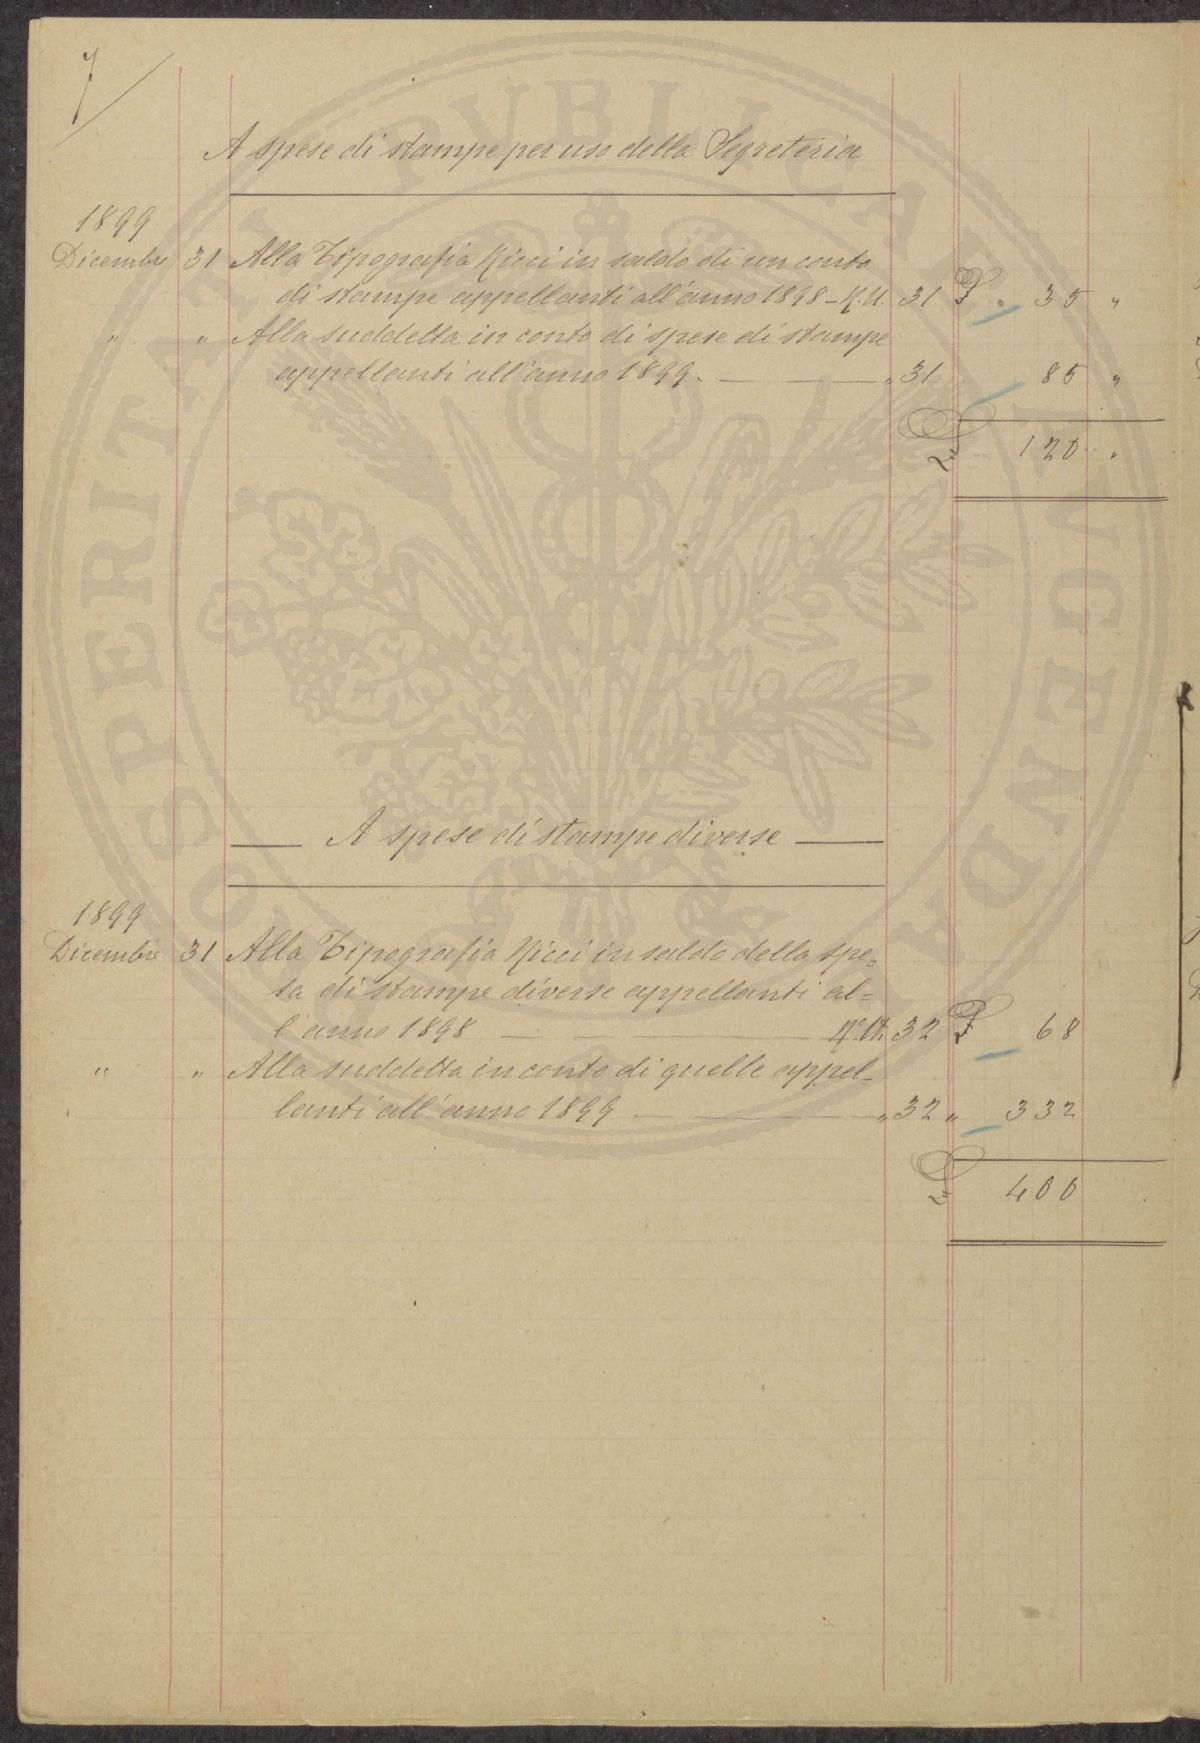 7
A spese di stampe per uso della Segreteria
1899
Dicembre 31 Alla Tipografia Ricci in saldo di un conto
di stampe appellanti all'anno 1898 - N.U. 31 £ . 35 "
" " Alla suddetta in conto di spese di stampe
appellanti all'anno 1899. " 31 85 "
£ 120 "
A spese di stampe diverse
1899
Dicembre 31 Alla Tipografia Ricci in saldo della spe=
sa di stampe diverse appellanti al=
l'anno 1898 N.U. 32 £ 68
" " Alla suddetta in conto di quelle appel=
lanti all'anno 1899 " 32 " 332
£ 400
PROSPERITATI PUBLICAE AUGENDAE